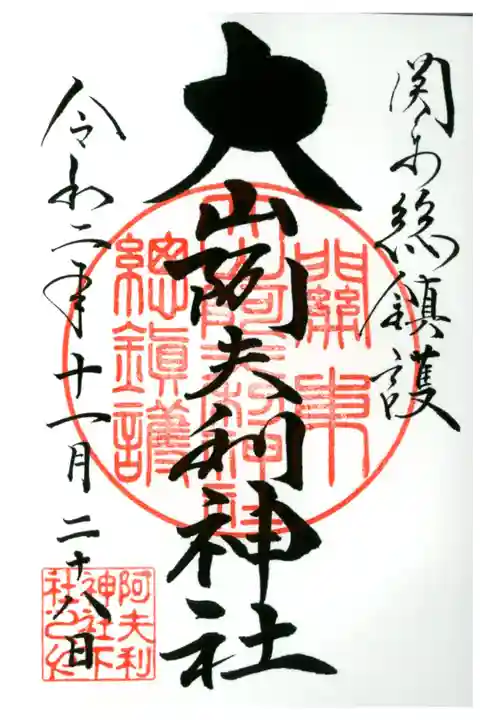 関東総鎮護
大山阿夫利神社
令和二年十一月二十八日
關東
大山阿夫利神社
總鎮護
阿夫利
神社下
社之印